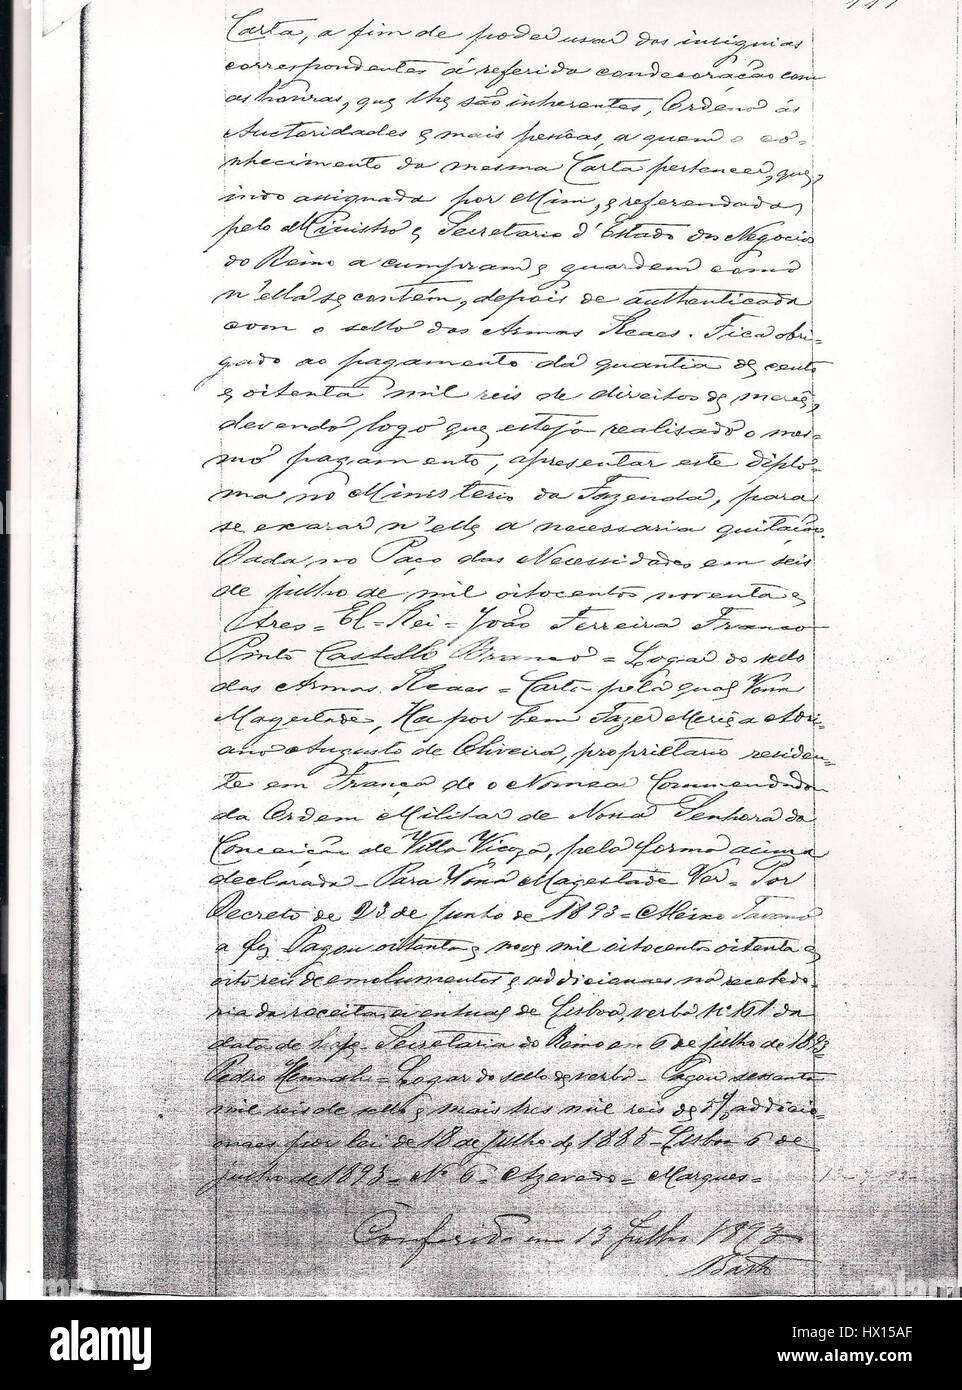 Carta, a fim de poder usar das insignias
correspondentes á referida condecoração com
as honras, que lhe são inherentes, Ordeno ás
Auctoridades e mais pessôas, a quem o co-
nhecimento da mesma Carta pertencer, que,
indo assignada por Mim, e referendada
pelo Ministro e Secretario d'Estado dos Negocios
do Reino a cumpram e guardem como
n'ella se contém, depois de authenticada
com o sello das Armas Reaes. Fica obri-
gado ao pagamento da quantia de cento
e oitenta mil reis de direitos de mercê,
devendo logo que esteja realisado o mes-
mo pagamento, apresentar este diplo-
ma no Ministerio da Fazenda, para
se exarar n'elle a necessaria quitação.
Dada no Paço das Necessidades em seis
de julho de mil oitocentos noventa e
tres = El-Rei = João Ferreira Franco
Pinto Castello Branco = Logar do sello
das Armas Reaes = Carta pela qual Vossa
Magestade, Ha por bem Fazer Mercê a Adri-
ano Augusto de Oliveira, proprietario residen-
te em França de o Nomear Commendador
da Ordem Militar de Nossa Senhora da
Conceição de Villa Viçoza, pela forma acima
declarada - Para Vossa Magestade Ver = Por
Decreto de 23 de Junho de 1893 = Aleixo Tavares
a fez Pagou oitenta e nove mil oitocentos oitenta e
oito reis de emolumentos e addicionaes na recebedo-
ria da receita eventual de Lisboa, verba nº da
data de hoje - Secretaria do Reino em 6 de julho de 1893
Pedro = Logar do sello de verba - Pagou sessenta
mil reis de sello e mais tres mil reis de 5% addicio-
naes por lei de 18 de Julho de 1885 - Lisboa 6 de
julho de 1893 - Nº 6 - Azevedo = Marques =
Conferido em 13 Julho 1893
Basto
alamy
HX15AF
www.alamy.com